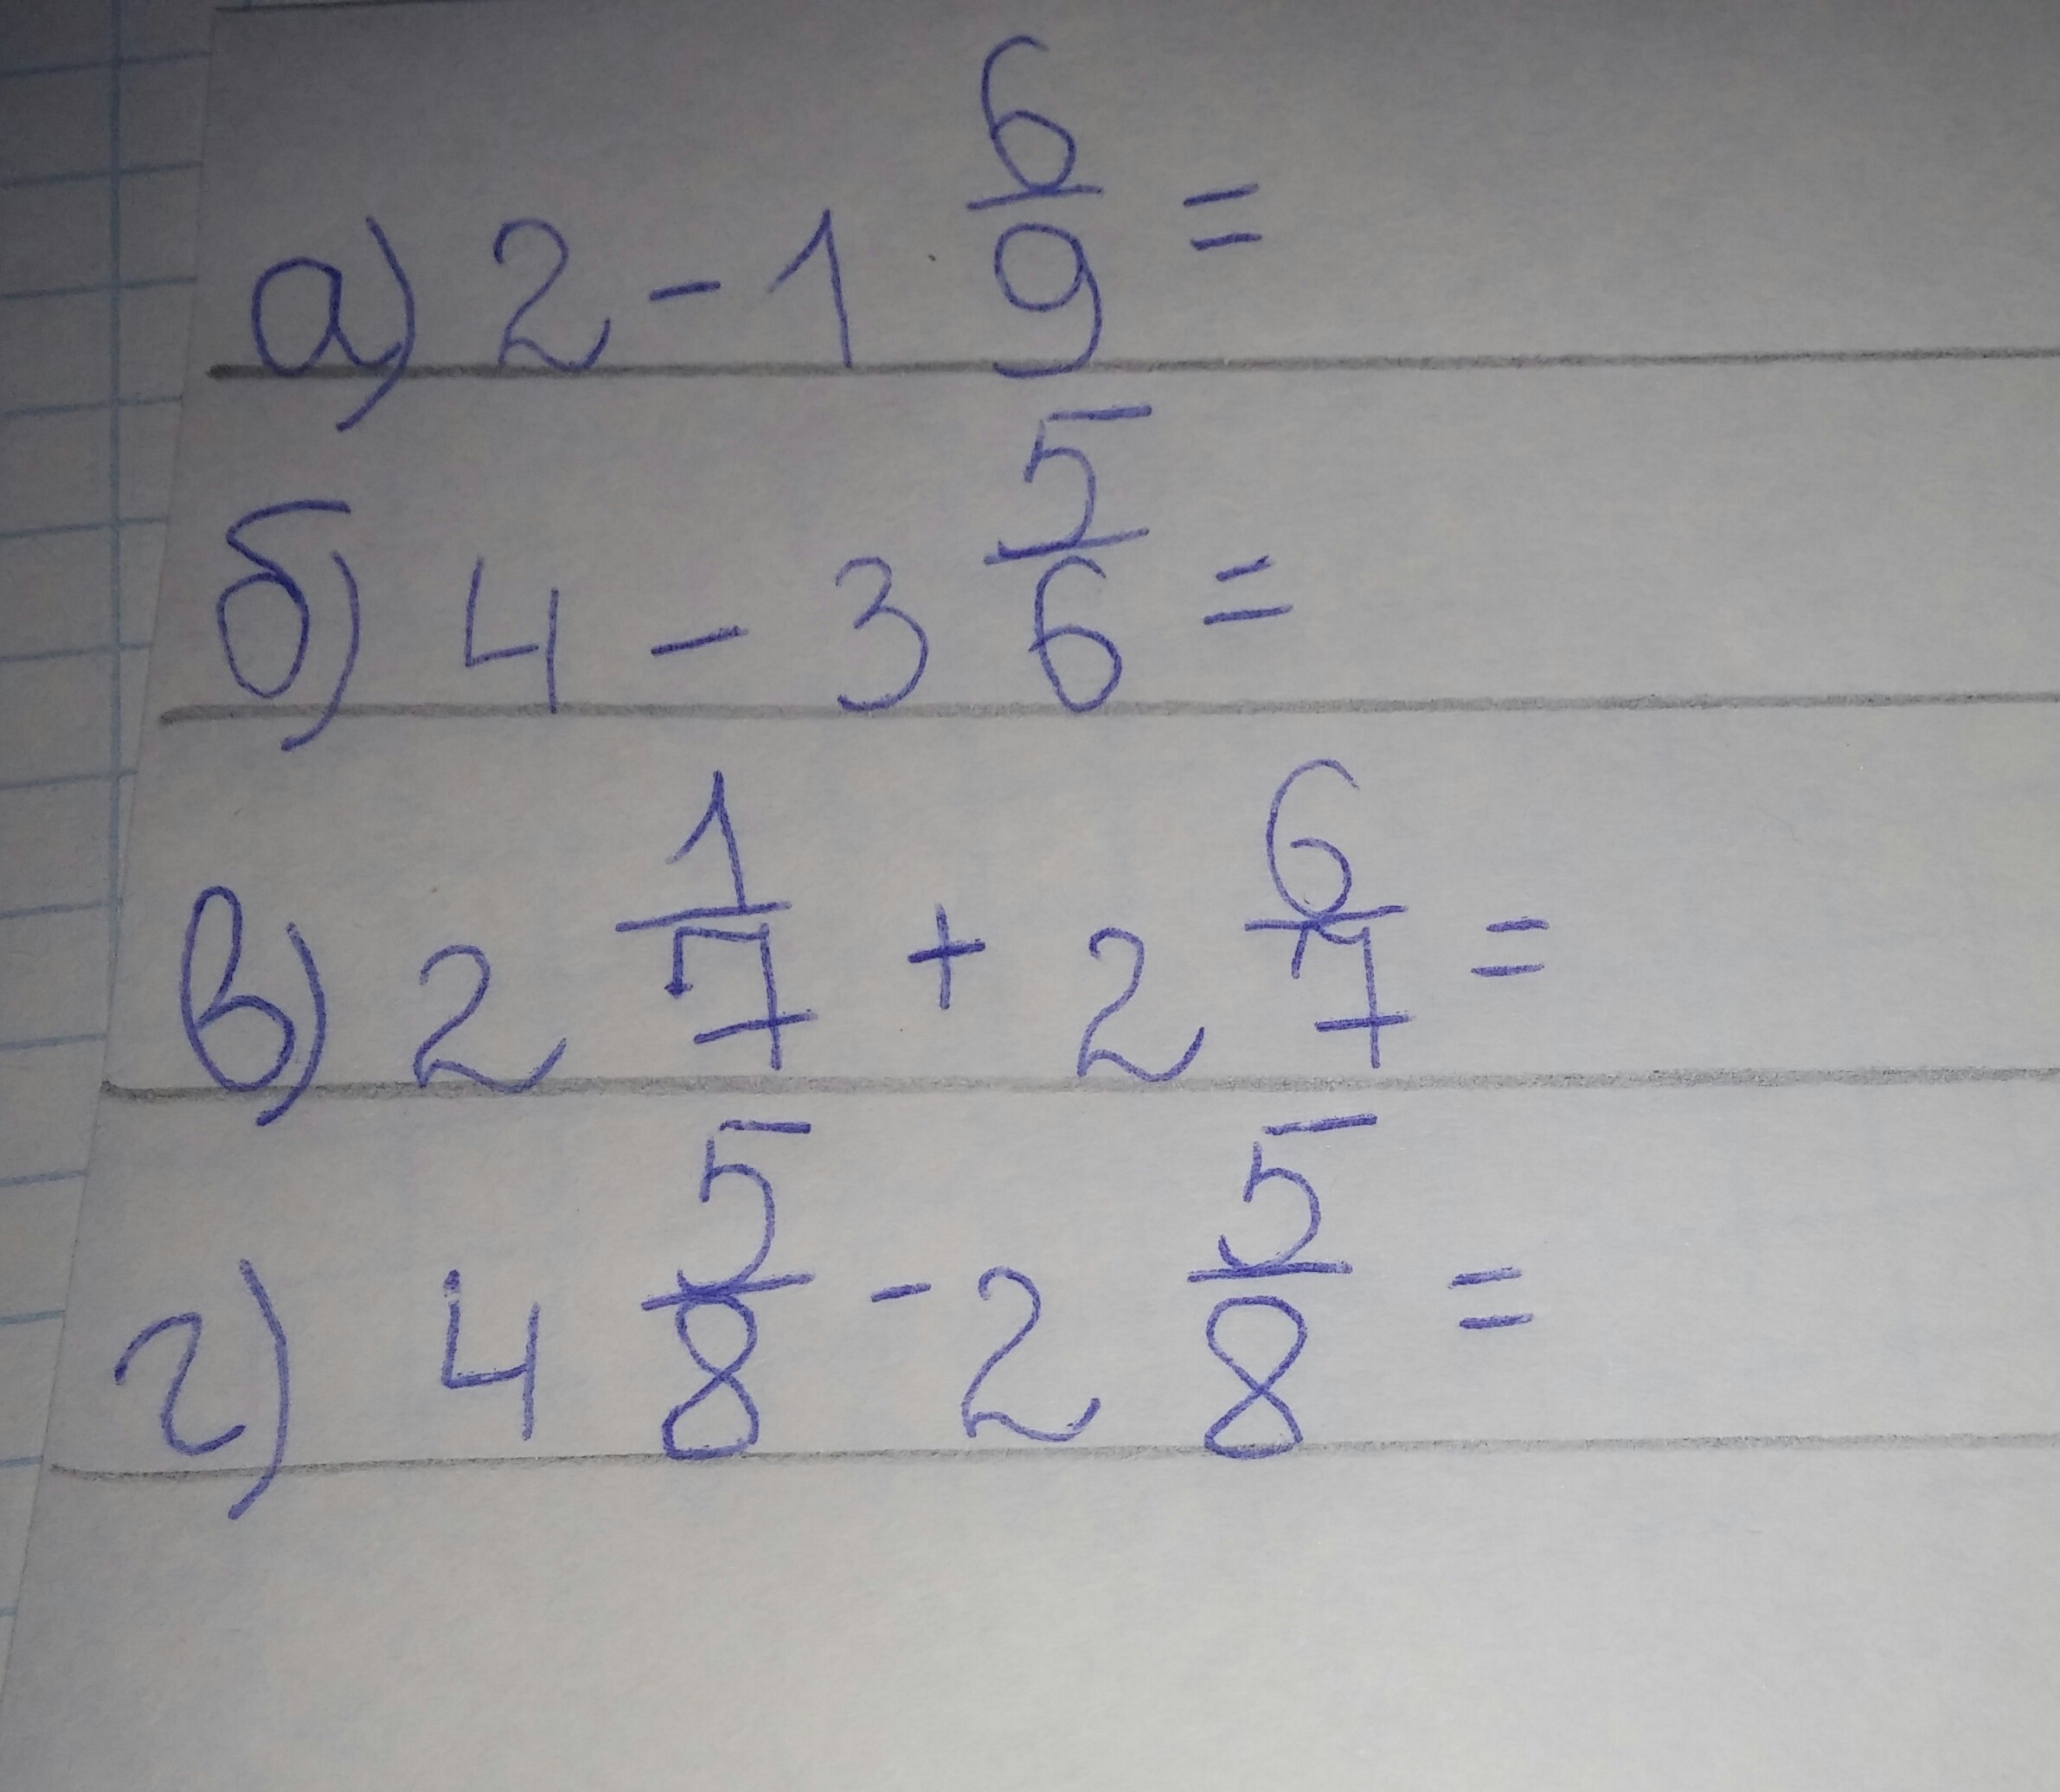 а) 2 - 1 6/9 =
б) 4 - 3 5/6 =
в) 2 1/7 + 2 6/7 =
г) 4 5/8 - 2 5/8 =